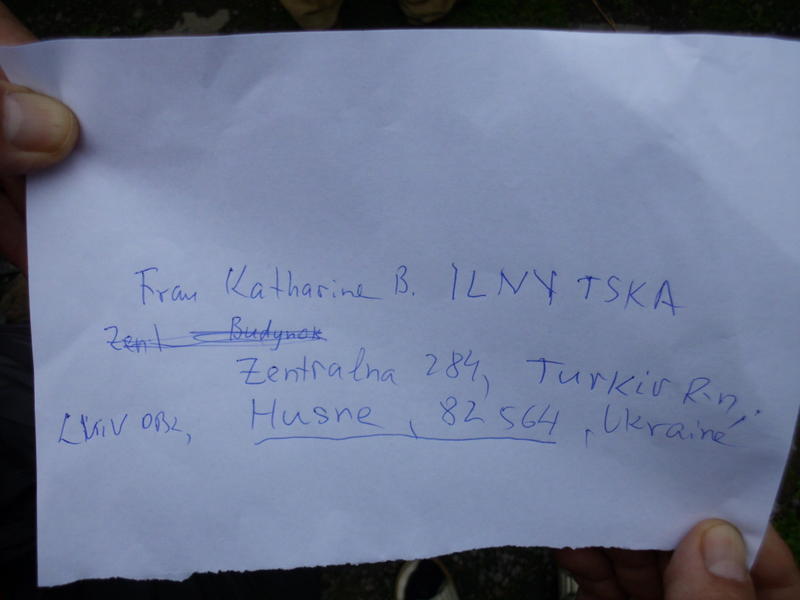 Frau Katharine B. ILNYTSKA
Zent Budynok
Zentralna 284, Turkiv R-n.
LVIV OBL, Husne, 82564, Ukraine